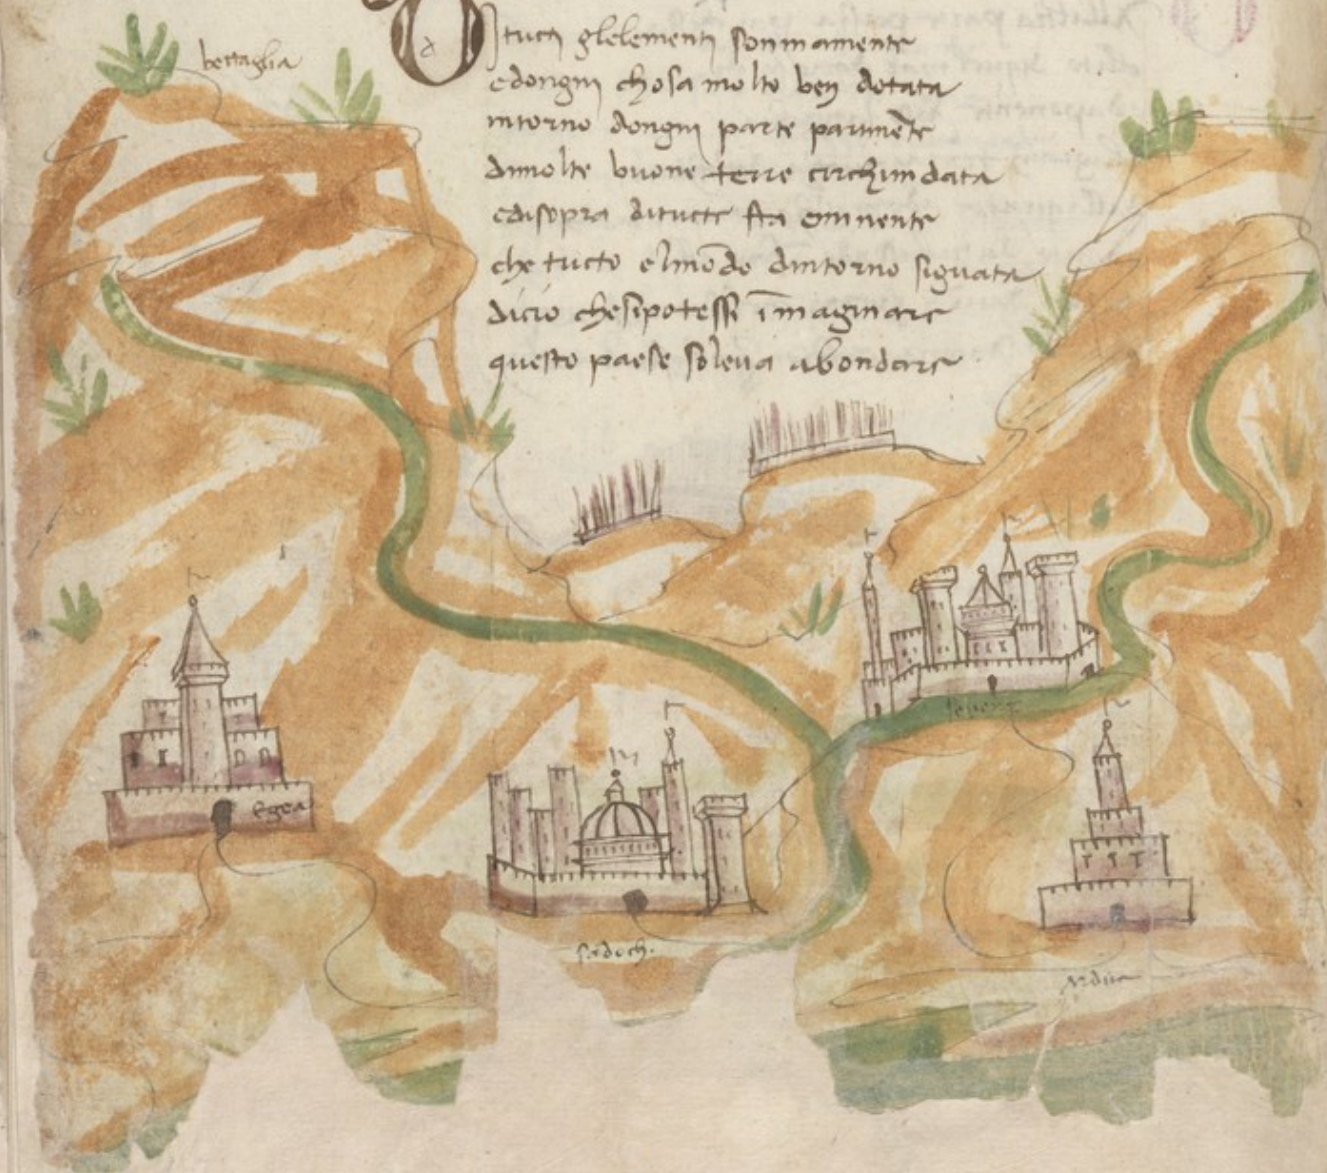 bectaglia
Dituctj glelementj sommamente
edongnj chosa molto benj dotata
intorno dongnj parte parimēte
dimolte buone terre circhundata
edisopra ditucte sta eminente
che tucto elmōdo dintorno siguata
dicio chesipotessi īmaginare
questo paese soleva abondare
Egea
sadoch.